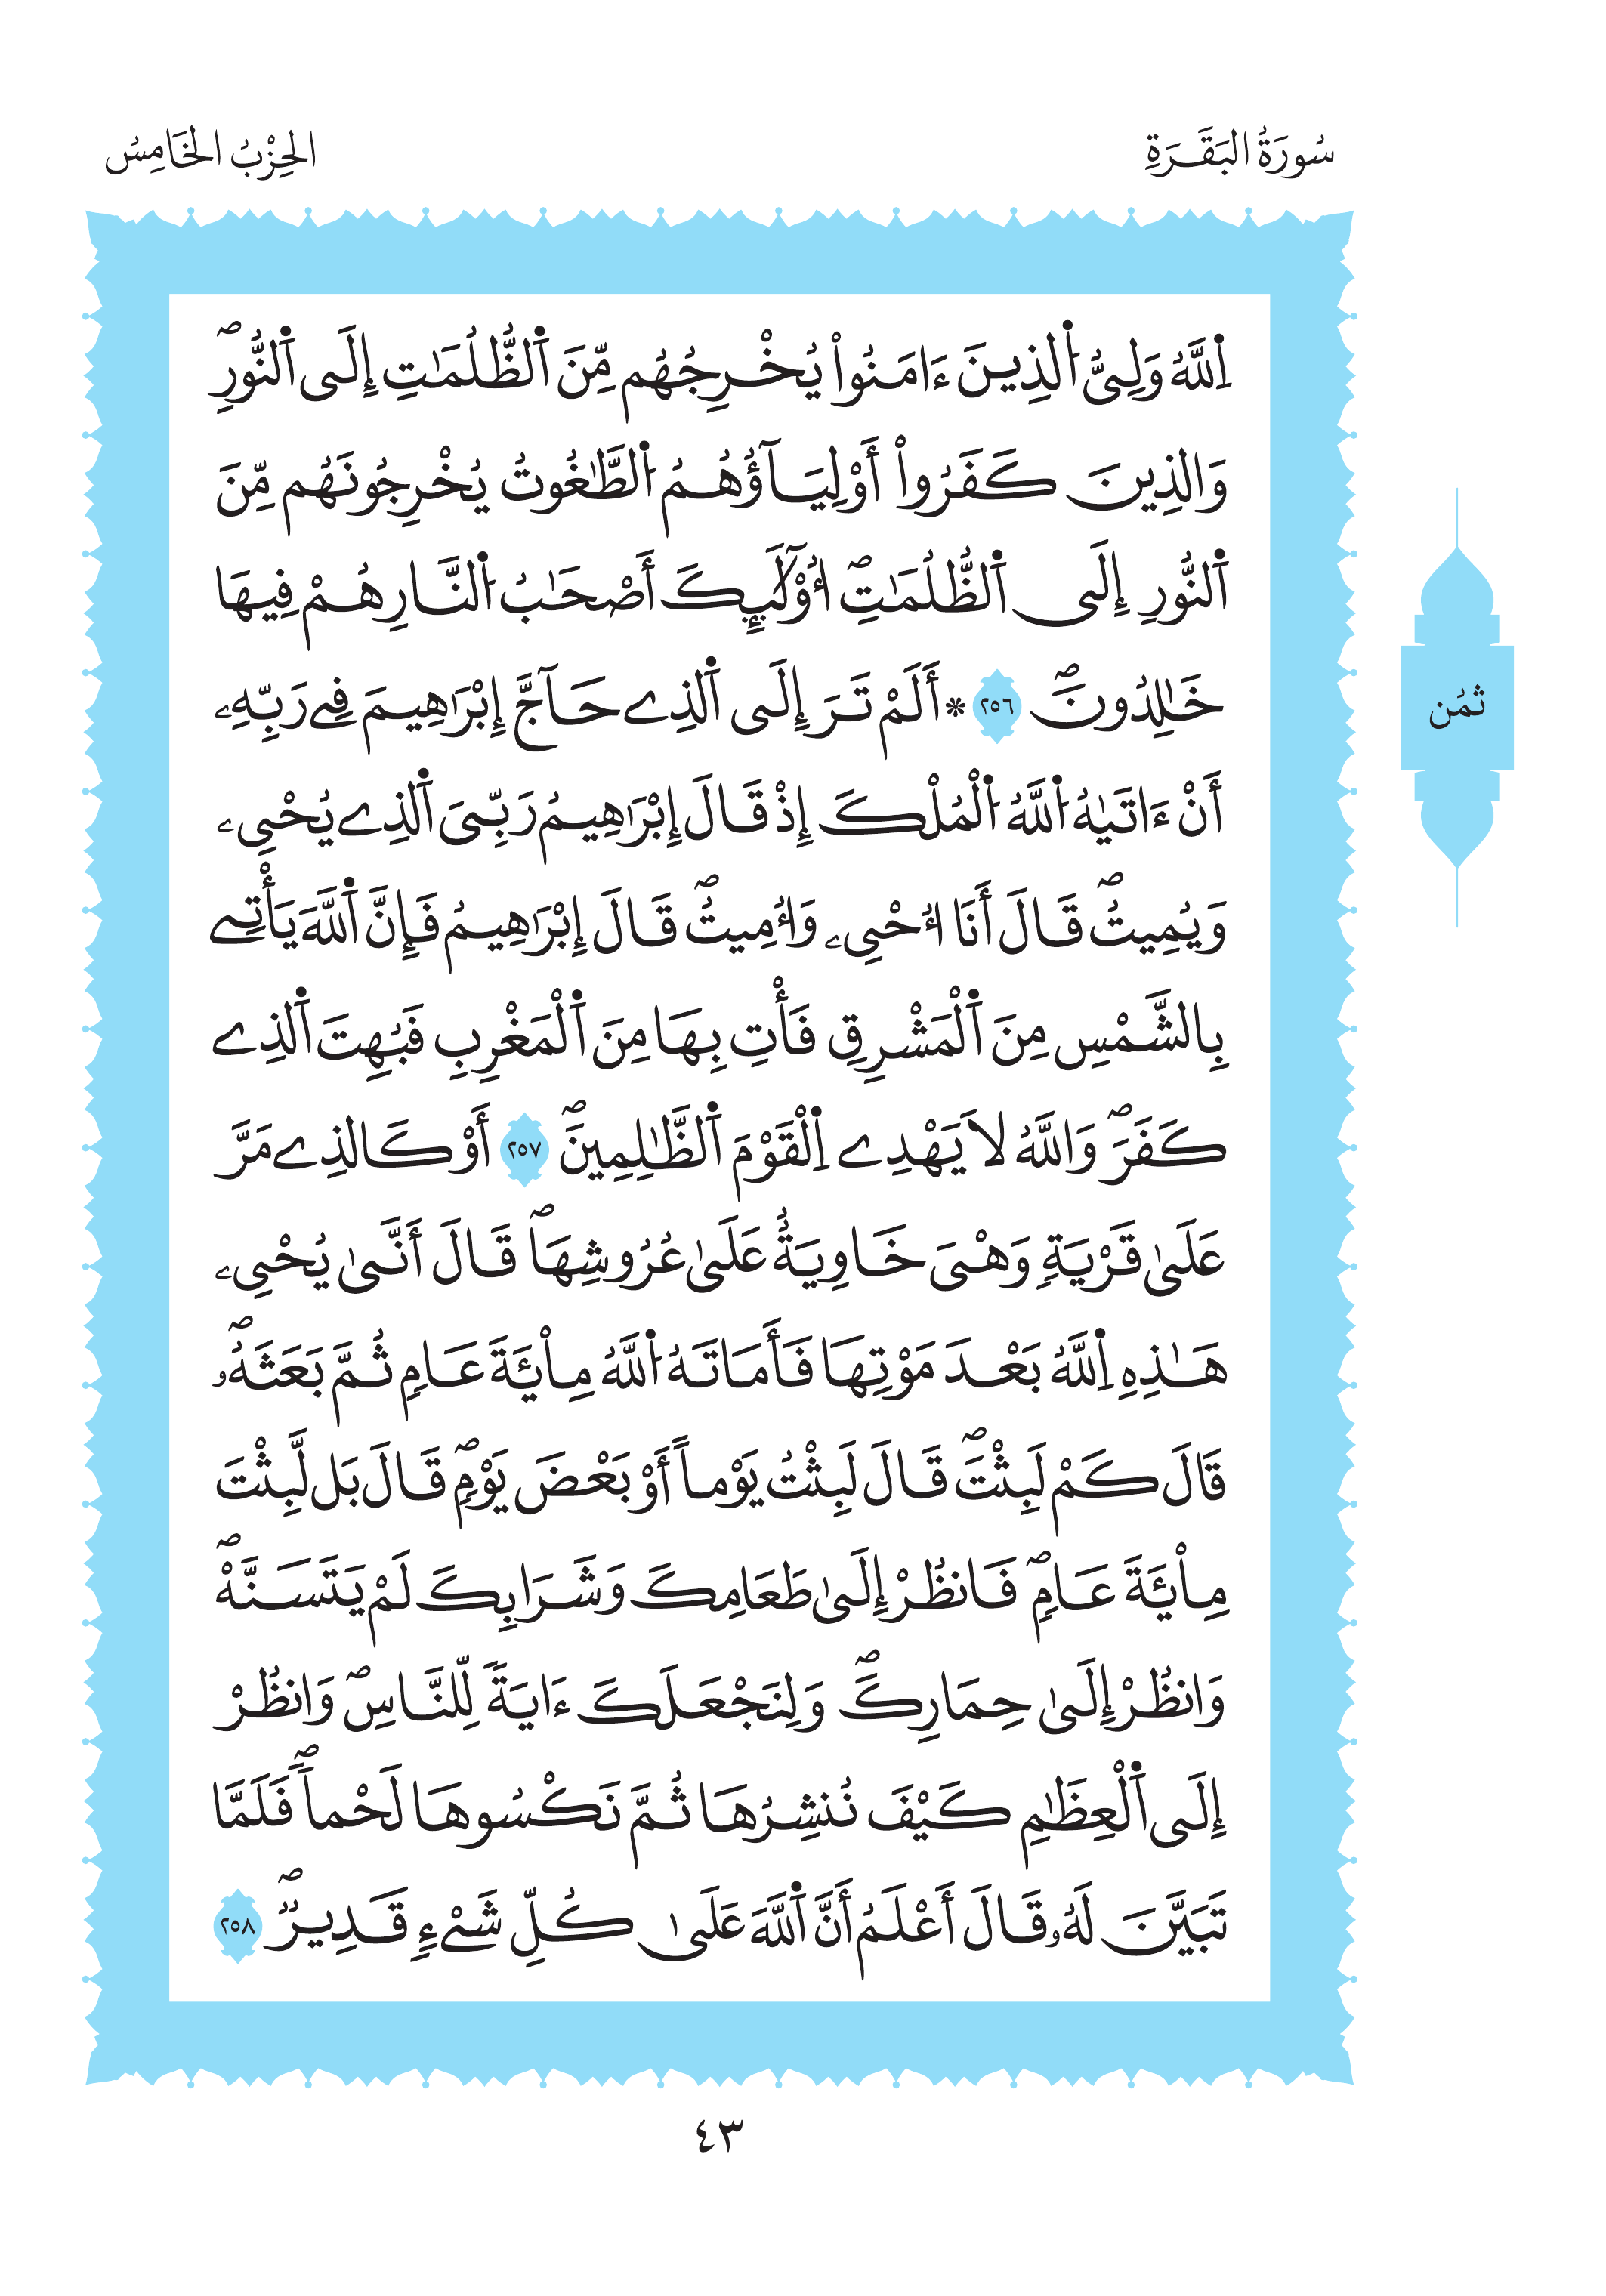 سُورَةُ البَقَرَةِ
الحِزْبُ الخَامِسُ
اِ۬للَّهُ وَلِيُّ اُ۬لذِينَ ءَامَنُواْ يُخْرِجُهُم مِّنَ اَ۬لظُّلُمَٰتِ إِلَى اَ۬لنُّورِۖ
وَالذِينَ كَفَرُواْ أَوْلِيَآؤُهُمُ اُ۬لطَّٰغُوتُ يُخْرِجُونَهُم مِّنَ
اَ۬لنُّورِ إِلَى اَ۬لظُّلُمَٰتِۖ أُوْلَٰٓئِكَ أَصْحَٰبُ اُ۬لنَّارِ هُمْ فِيهَا
خَٰلِدُونَۖ ٢٥٦ * أَلَمْ تَرَ إِلَى اَ۬لذِے حَآجَّ إِبْرَٰهِيمَ فِے رَبِّهِۦ
أَنْ ءَاتَيٰهُ اُ۬للَّهُ اُ۬لْمُلْكَ إِذْ قَالَ إِبْرَٰهِيمُ رَبِّيَ اَ۬لذِے يُحْيِۦ
وَيُمِيتُۖ قَالَ أَنَا أُحْيِۦ وَأُمِيتُۖ قَالَ إِبْرَٰهِيمُ فَإِنَّ اَ۬للَّهَ يَأْتِے
بِالشَّمْسِ مِنَ اَ۬لْمَشْرِقِ فَأْتِ بِهَا مِنَ اَ۬لْمَغْرِبِ فَبُهِتَ اَ۬لذِے
كَفَرَۖ وَاللَّهُ لَا يَهْدِے اِ۬لْقَوْمَ اَ۬لظَّٰلِمِينَۖ ٢٥٧ أَوْ كَالذِے مَرَّ
عَلَىٰ قَرْيَةٖ وَهْىَ خَاوِيَةٌ عَلَىٰ عُرُوشِهَاۖ قَالَ أَنَّىٰ يُحْيِۦ
هَٰذِهِ اِ۬للَّهُ بَعْدَ مَوْتِهَا فَأَمَاتَهُ اُ۬للَّهُ مِاْئَةَ عَامٖ ثُمَّ بَعَثَهُۥۖ
قَالَ كَمْ لَبِثْتَۖ قَالَ لَبِثْتُ يَوْماً أَوْ بَعْضَ يَوْمٖۖ قَالَ بَل لَّبِثْتَ
مِاْئَةَ عَامٖۖ فَانظُرْ إِلَىٰ طَعَامِكَ وَشَرَابِكَ لَمْ يَتَسَنَّهْۖ
وَانظُرْ إِلَىٰ حِمَارِكَۖ وَلِنَجْعَلَكَ ءَايَةٗ لِّلنَّاسِۖ وَانظُرْ
إِلَى اَ۬لْعِظَٰمِ كَيْفَ نُنشِرُهَا ثُمَّ نَكْسُوهَا لَحْماٗۖ فَلَمَّا
تَبَيَّنَ لَهُۥ قَالَ أَعْلَمُ أَنَّ اَ۬للَّهَ عَلَىٰ كُلِّ شَےْءٖ قَدِيرٞۖ ٢٥٨
ثُمُن
٤٣